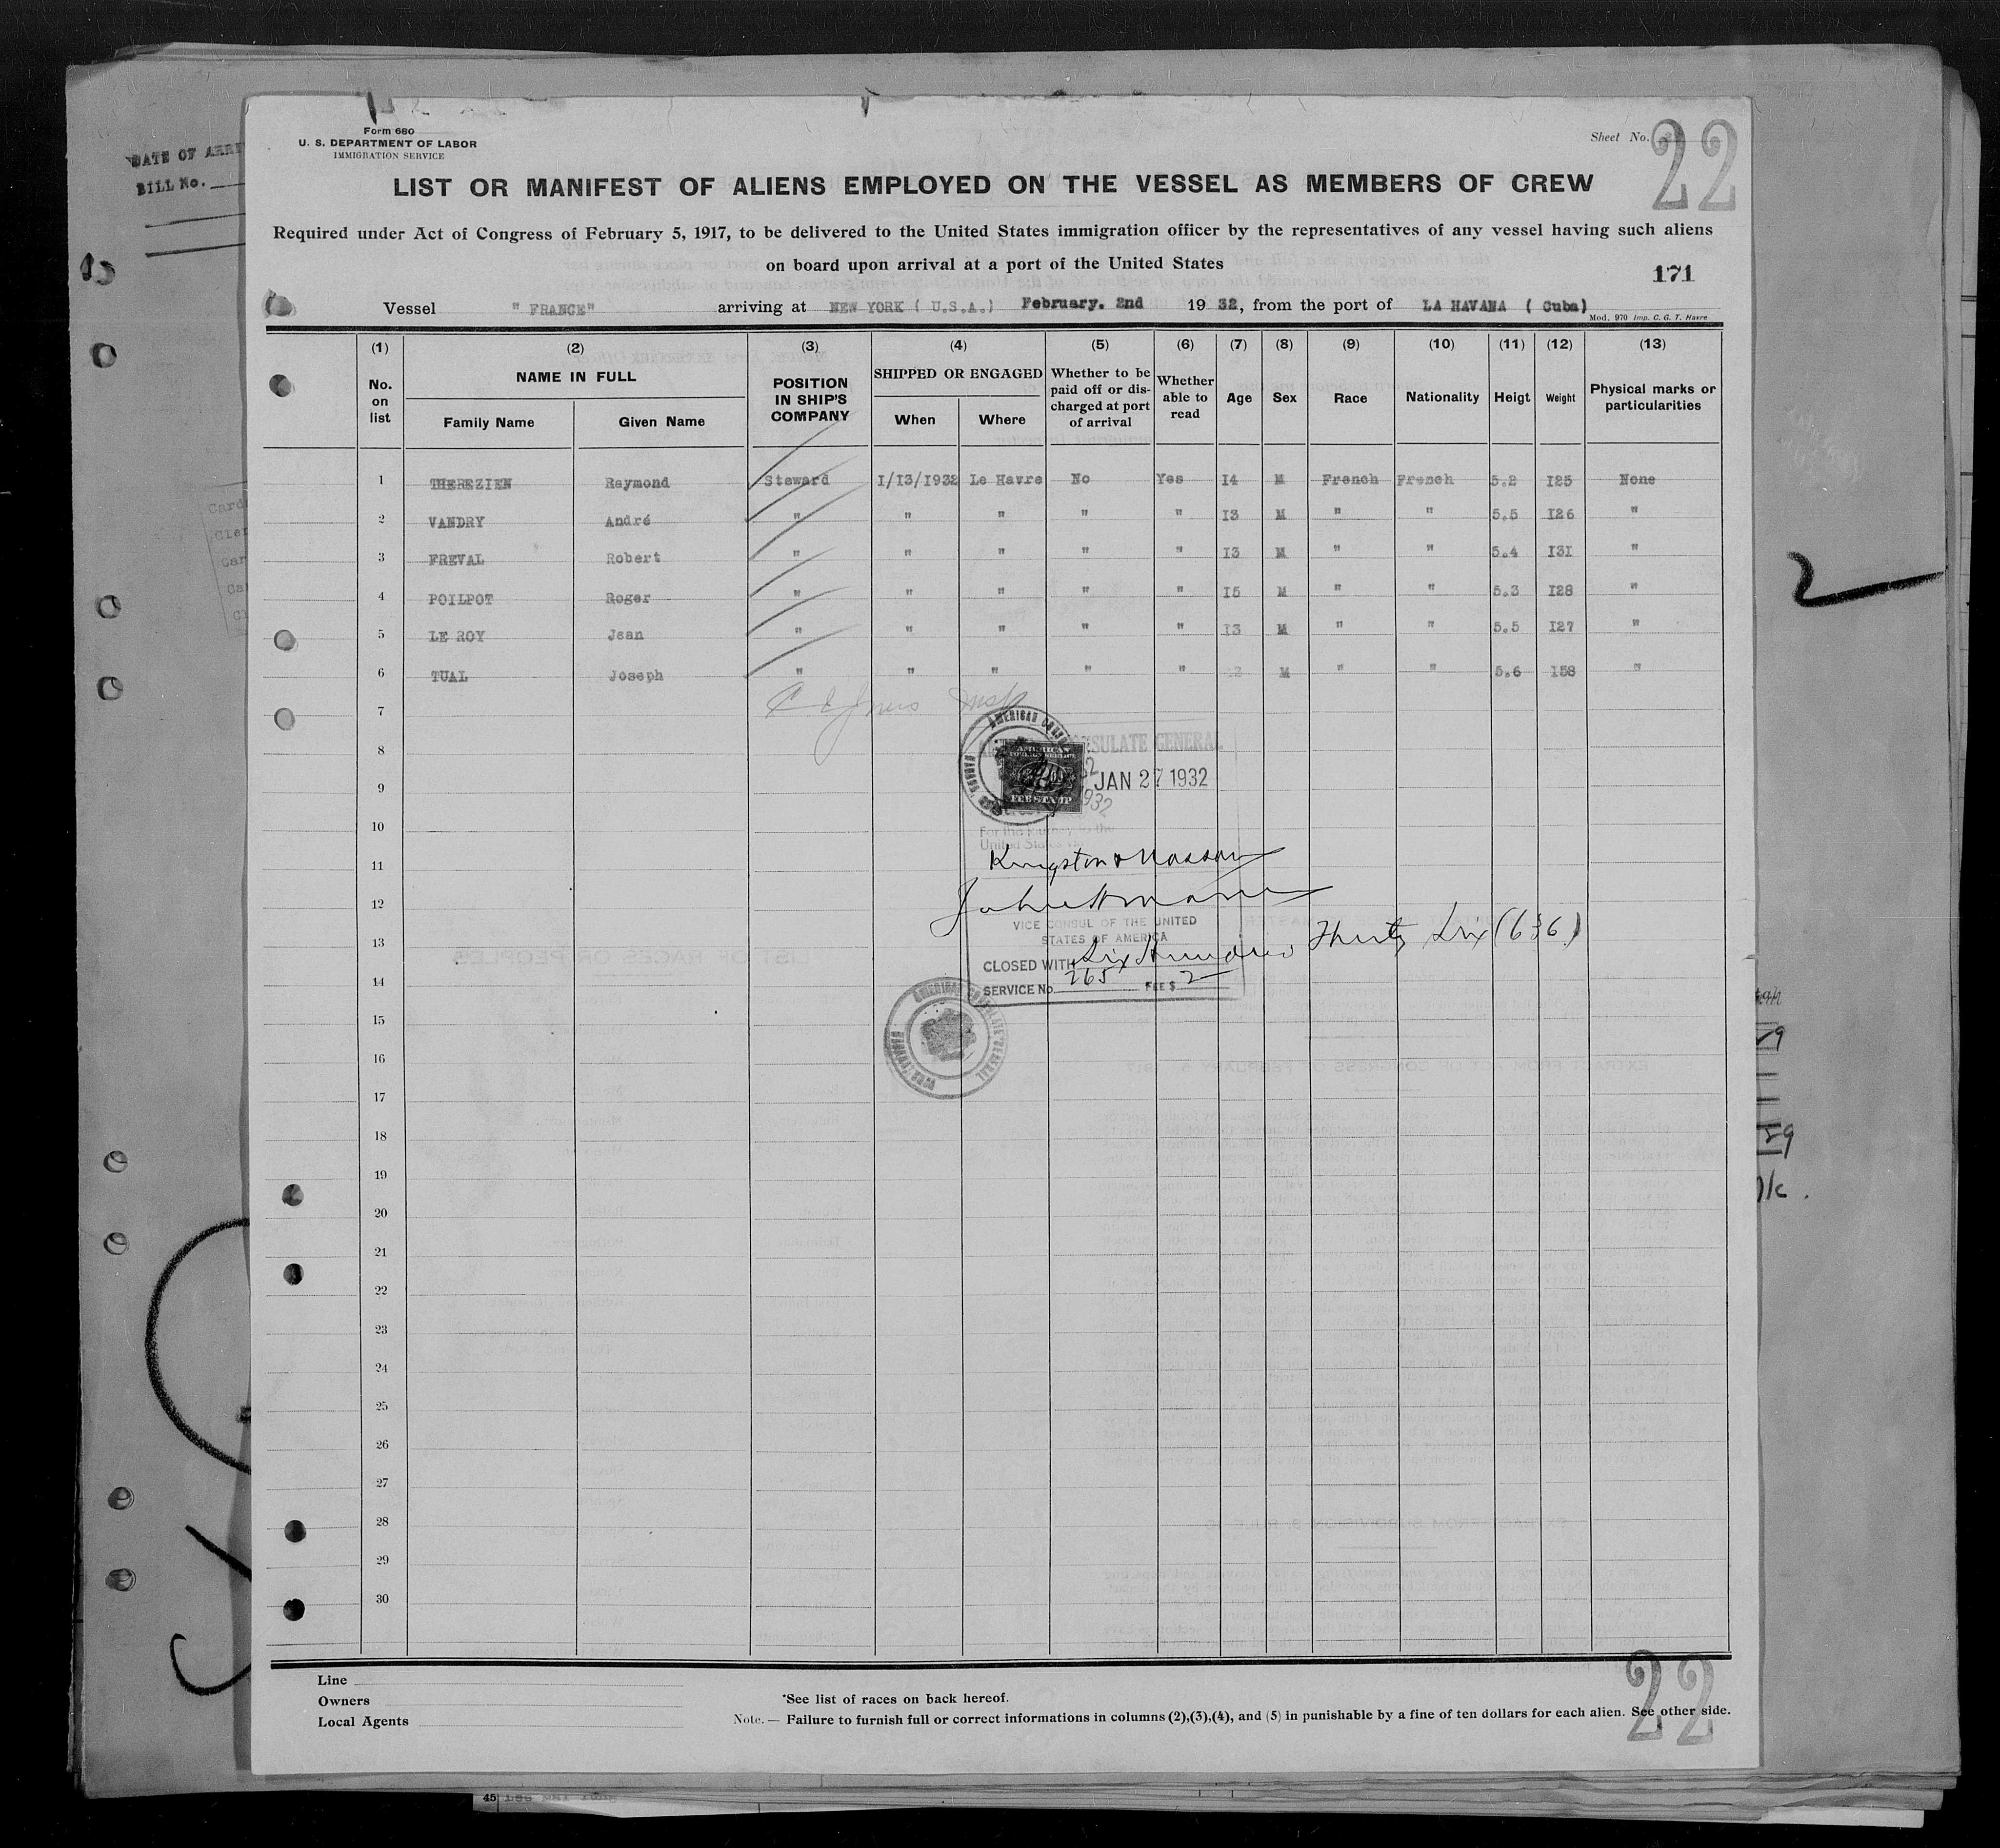 DATE OF ARRI
BILL No.
Form 680
U. S. DEPARTMENT OF LABOR
IMMIGRATION SERVICE
Sheet No.
22
LIST OR MANIFEST OF ALIENS EMPLOYED ON THE VESSEL AS MEMBERS OF CREW
Required under Act of Congress of February 5, 1917, to be delivered to the United States immigration officer by the representatives of any vessel having such aliens
on board upon arrival at a port of the United States
171
Vessel " FRANCE" arriving at NEW YORK ( U.S.A.) February. 2nd 19 32, from the port of LA HAVANA ( Cuba)
Mod. 970 Imp. C. G. T. Havre
(1) (2) (3) (4) (5) (6) (7) (8) (9) (10) (11) (12) (13)
No. on list NAME IN FULL Family Name Given Name POSITION IN SHIP'S COMPANY SHIPPED OR ENGAGED When Where Whether to be paid off or dis- charged at port of arrival Whether able to read Age Sex Race Nationality Heigt Weight Physical marks or particularities
1 THEREZIEN Raymond Steward 1/13/1932 Le Havre No Yes 14 M French French 5.2 125 None
2 VANDRY André " " " " " 13 M " " 5.5 126 "
3 FREVAL Robert " " " " " 13 M " " 5.4 131 "
4 POILPOT Roger " " " " " 15 M " " 5.3 128 "
5 LE ROY Jean " " " " " 13 M " " 5.5 127 "
6 TUAL Joseph " " " " " M " " 5.6 158 "
7
8
9
10
11
12
13
14
15
16
17
18
19
20
21
22
23
24
25
26
27
28
29
30
AMERICAN
FEE STAMP
CONSULATE GENERAL
JAN 27 1932
For the journey to the
United States
Kingston & Nassau
VICE CONSUL OF THE UNITED
STATES OF AMERICA
CLOSED WITH Six Hundred Thirty Six (636)
SERVICE No. 265 FEE $ 2
2
Line
Owners
Local Agents
*See list of races on back hereof.
Note. — Failure to furnish full or correct informations in columns (2),(3),(4), and (5) in punishable by a fine of ten dollars for each alien. See other side.
22
45